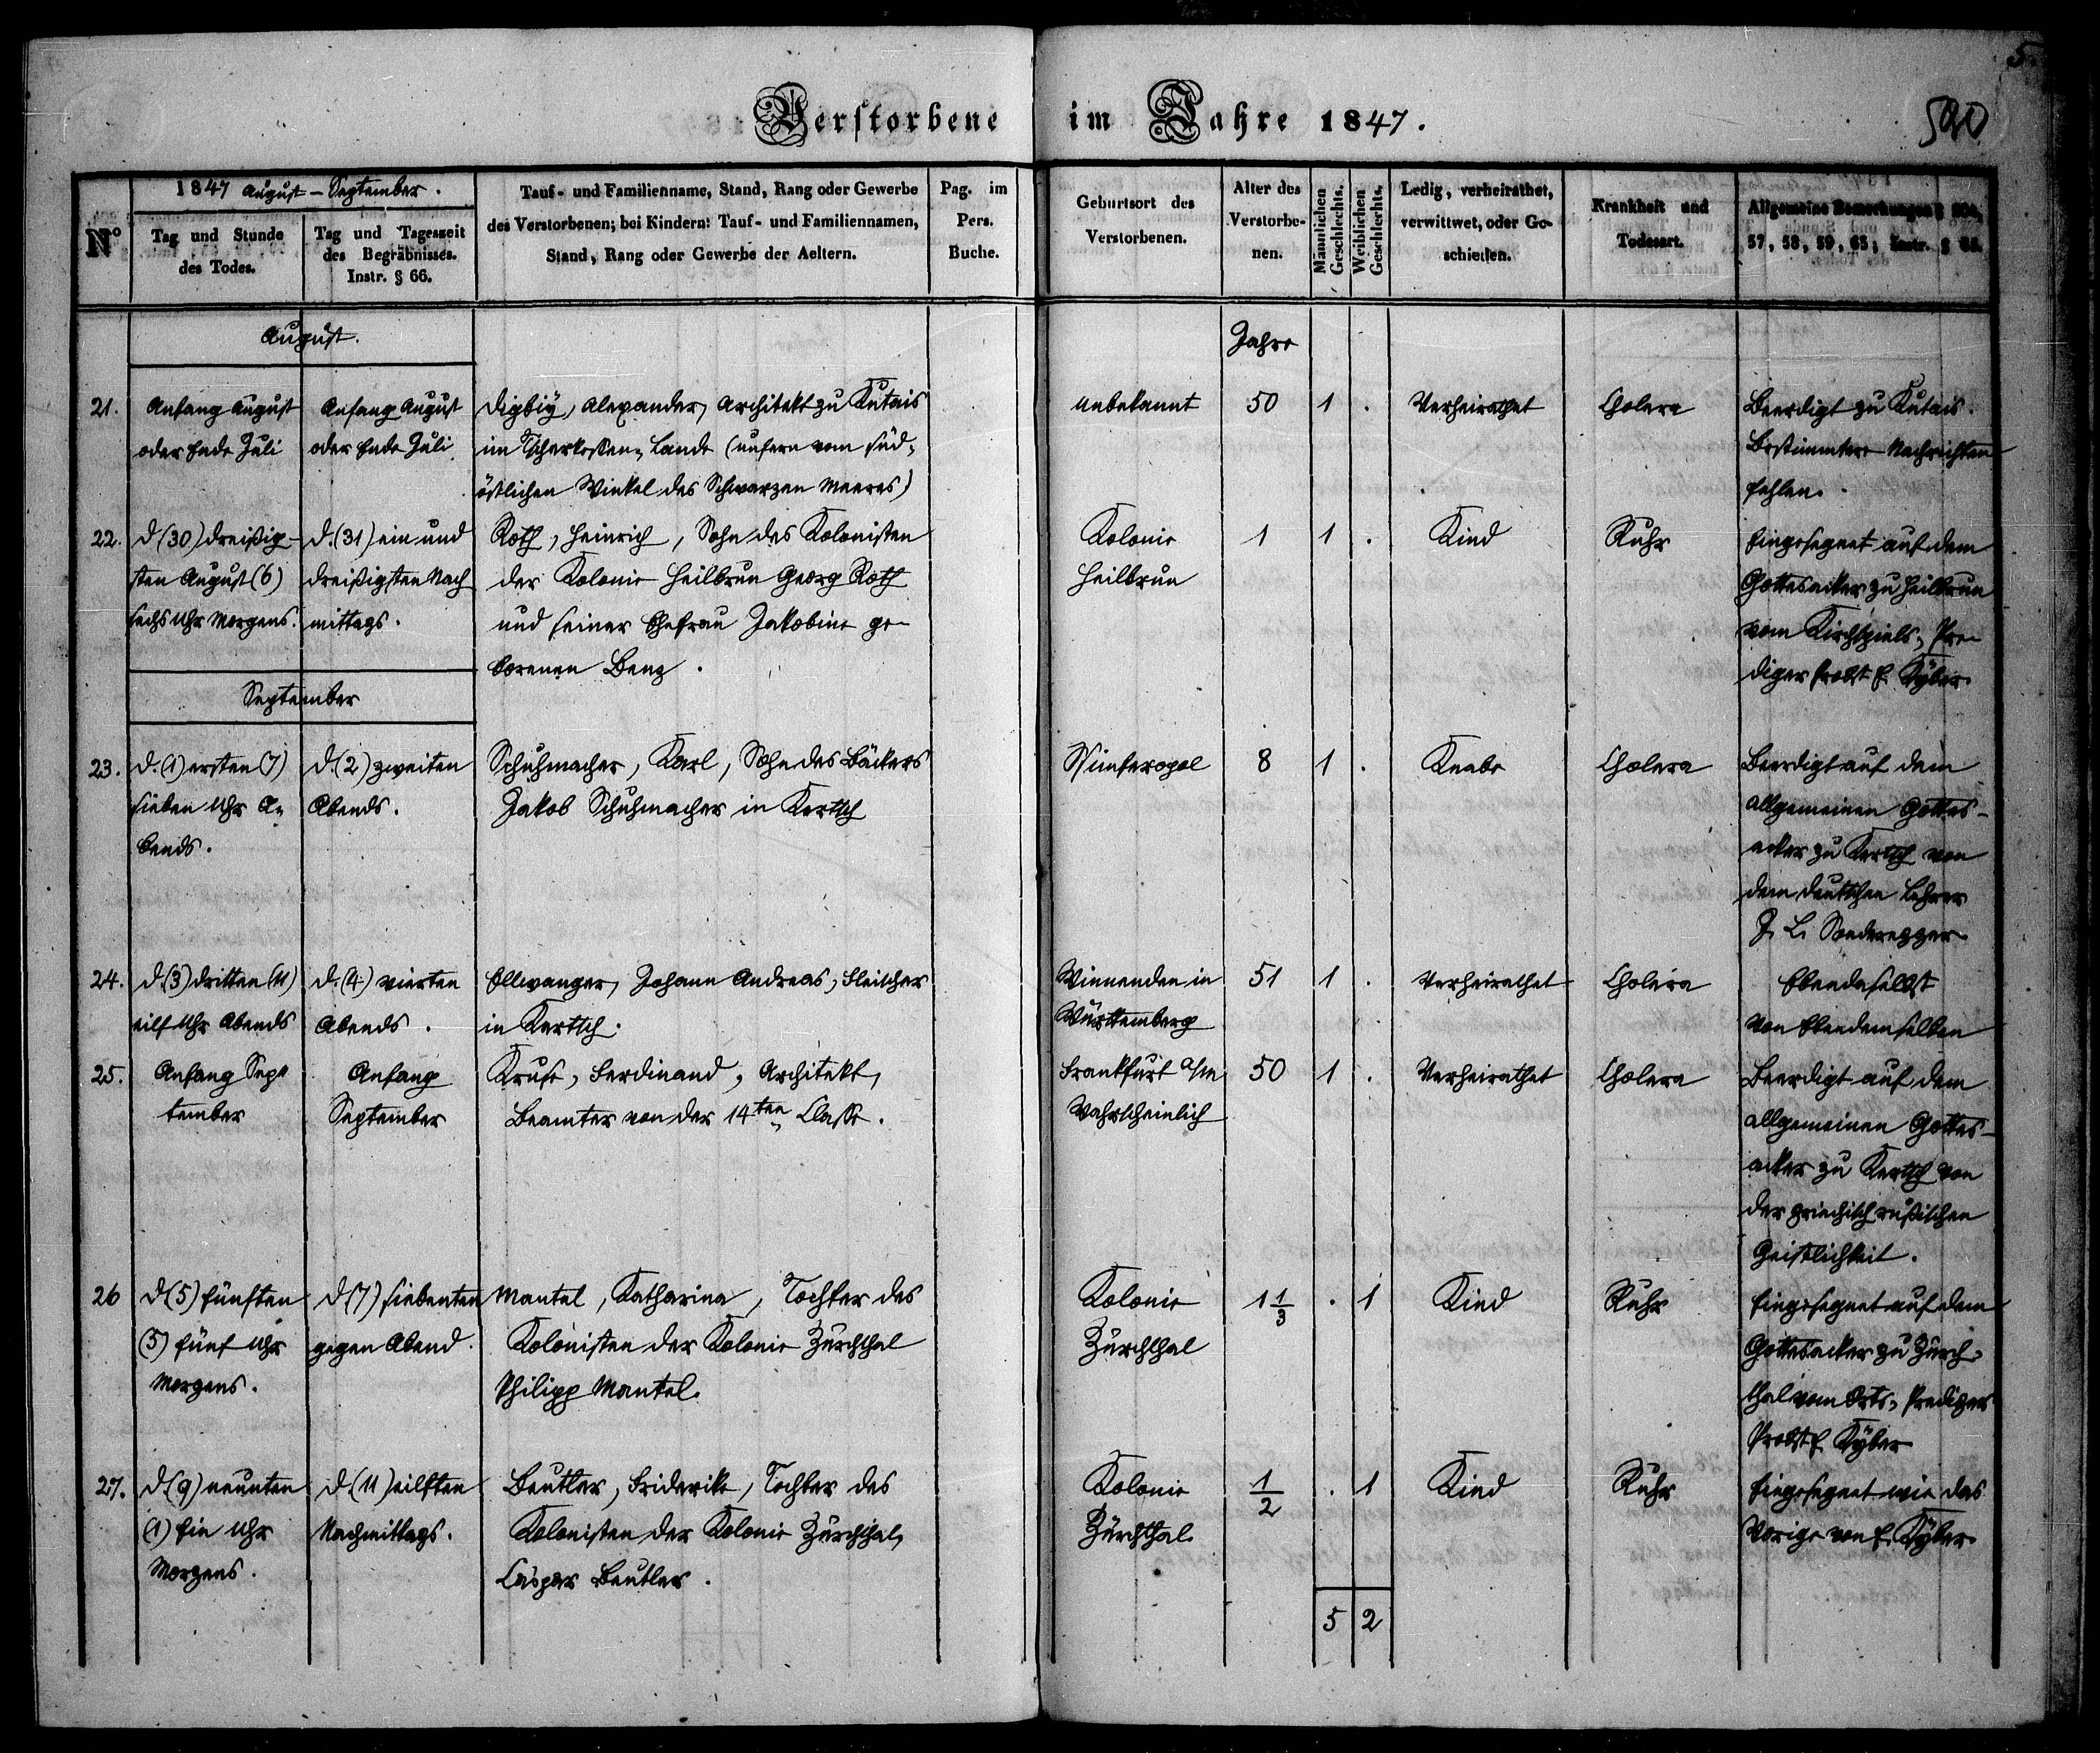 Verstorbene im Jahre 1847.
590
5
No
1847 August – September.
Tag und Stunde
des Todes.
Tag und Tageszeit
des Begräbnisses.
Instr. § 66.
Tauf- und Familienname, Stand, Rang oder Gewerbe
des Verstorbenen; bei Kindern: Tauf- und Familiennamen,
Stand, Rang oder Gewerbe der Aeltern.
Pag. im
Pers.
Buche.
Geburtsort des
Verstorbenen.
Alter des
Verstorbe-
nen.
Männlichen
Geschlechts.
Weiblichen
Geschlechts.
Ledig, verheirathet,
verwittwet, oder Ge-
schieden.
Krankheit und
Todesart.
Allgemeine Bemerkungen
57, 58, 59, 65; Instr. §
August.
Jahre
21.
Anfang August
oder Ende Juli
Anfang August
oder Ende Juli
Digbiÿ, Alexander, Architekt zu Kutais
im Tscherkessen-Lande (unfern vom süd-
östlichen Winkel des Schwarzen Meeres)
unbekannt
50
1
.
Verheirathet
Cholera
Beerdigt zu Kutais.
Bestimmtere Nachrichten
fehlen.
22.
d. (30) dreißig-
sten August (6)
sechs Uhr Morgens.
d. (31) ein und
dreißigsten Nach
mittags.
Roth, Heinrich, Sohn des Kolonisten
der Kolonie Heilbrun Georg Roth
und seiner Ehefrau Jakobine ge-
borenen Benz.
Kolonie
Heilbrun
1
1
.
Kind
Ruhr
Eingesegnet auf dem
Gottesacker zu Heilbrun
vom Kirchspiels-Pre-
diger Probst E. Kÿber.
September
23.
d. (1) ersten (7)
sieben Uhr A-
bends.
d. (2) zweiten
Abends.
Schuhmacher, Karl, Sohn des Bäckers
Jakob Schuhmacher in Kertsch
Simferopol
8
1
.
Knabe
Cholera
Beerdigt auf dem
allgemeinen Gottes-
acker zu Kertsch von
dem deutschen Lehrer
J. L. Sonderegger
24.
d. (3) dritten (11)
eilf Uhr Abends
d. (4.) vierten
Abends.
Ellwanger, Johann Andreas, Fleischer
in Kertsch.
Winnenden in
Württemberg
51
1
.
Verheirathet
Cholera
Ebendaselbst
von Ebendemselben
25.
Anfang Sep-
tember
Anfang
September
Kruse, Ferdinand, Architekt,
Beamter von der 14ten Classe.
Frankfurt a/m
Wahrscheinlich
50
1
.
Verheirathet
Cholera
Beerdigt auf dem
allgemeinen Gottes-
acker zu Kertsch von
der griechisch russischen
Geistlichkeit.
26
d. (5) fünften
(5) fünf Uhr
Morgens.
d. (7) siebenten
gegen Abend.
Mantel, Katharina, Tochter des
Kolonisten der Kolonie Zürchthal
Philipp Mantel.
Kolonie
Zürchthal
1 1/3
.
1
Kind
Ruhr
Eingesegnet auf dem
Gottesacker zu Zürch-
thal vom Orts-Prediger
Probst E. Kÿber
27.
d. (9) neunten
(1) Ein Uhr
Morgens.
d. (11) eilften
Nachmittags.
Beutler, Friderike, Tochter des
Kolonisten der Kolonie Zürchthal,
Caspar Beutler.
Kolonie
Zürchthal.
1/2
.
1
Kind
Ruhr
Eingesegnet wie das
Vorige von E. Kÿber.
5
2